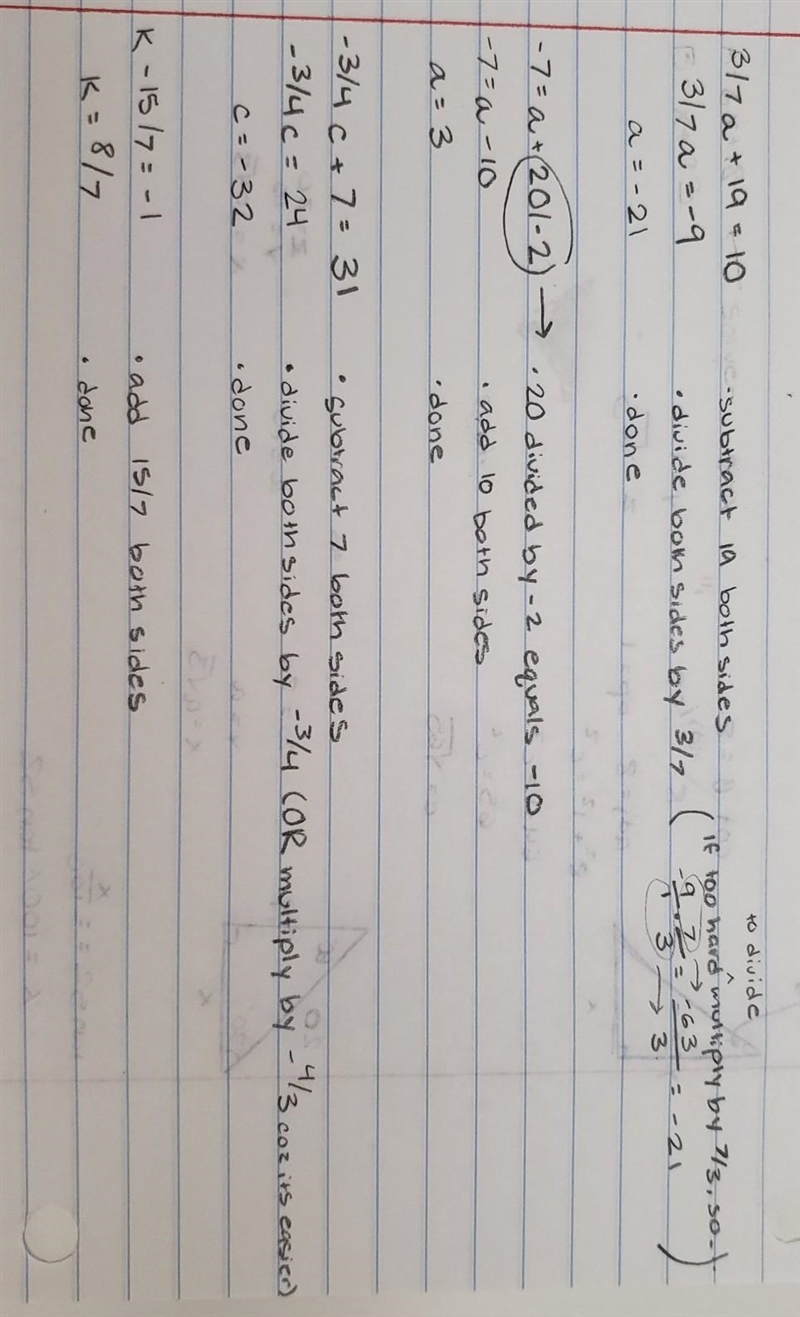 3/7 a + 19 = 10 · subtract 19 both sides
3/7 a = -9 · divide both sides by 3/7 (If too hard ^ to divide multiply by 7/3, so →
-9/1 · 7/3 = → -63/3 = -21)
a = -21 · done
-7 = a + (20/-2) → · 20 divided by -2 equals -10
-7 = a - 10 · add 10 both sides
a = 3 · done
-3/4 c + 7 = 31 · subtract 7 both sides
-3/4 c = 24 · divide both sides by -3/4 (OR multiply by -4/3 coz its easier)
c = -32 · done
K - 15/7 = -1 · add 15/7 both sides
K = 8/7 · done